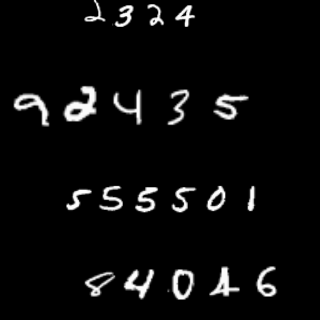 2324
92435
555501
84046